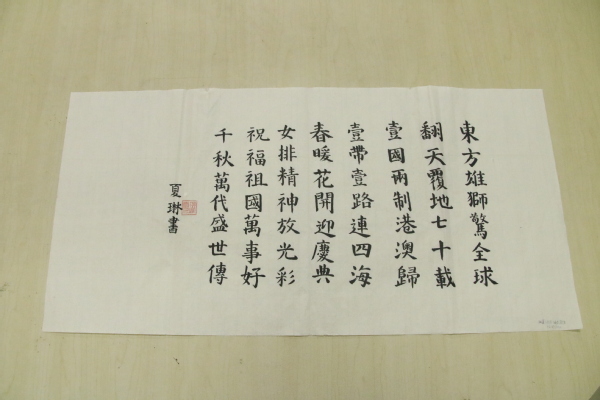 東方雄獅驚全球
翻天覆地七十載
壹國兩制港澳歸
壹帶壹路連四海
春暖花開迎慶典
女排精神放光彩
祝福祖國萬事好
千秋萬代盛世傳
夏琳書